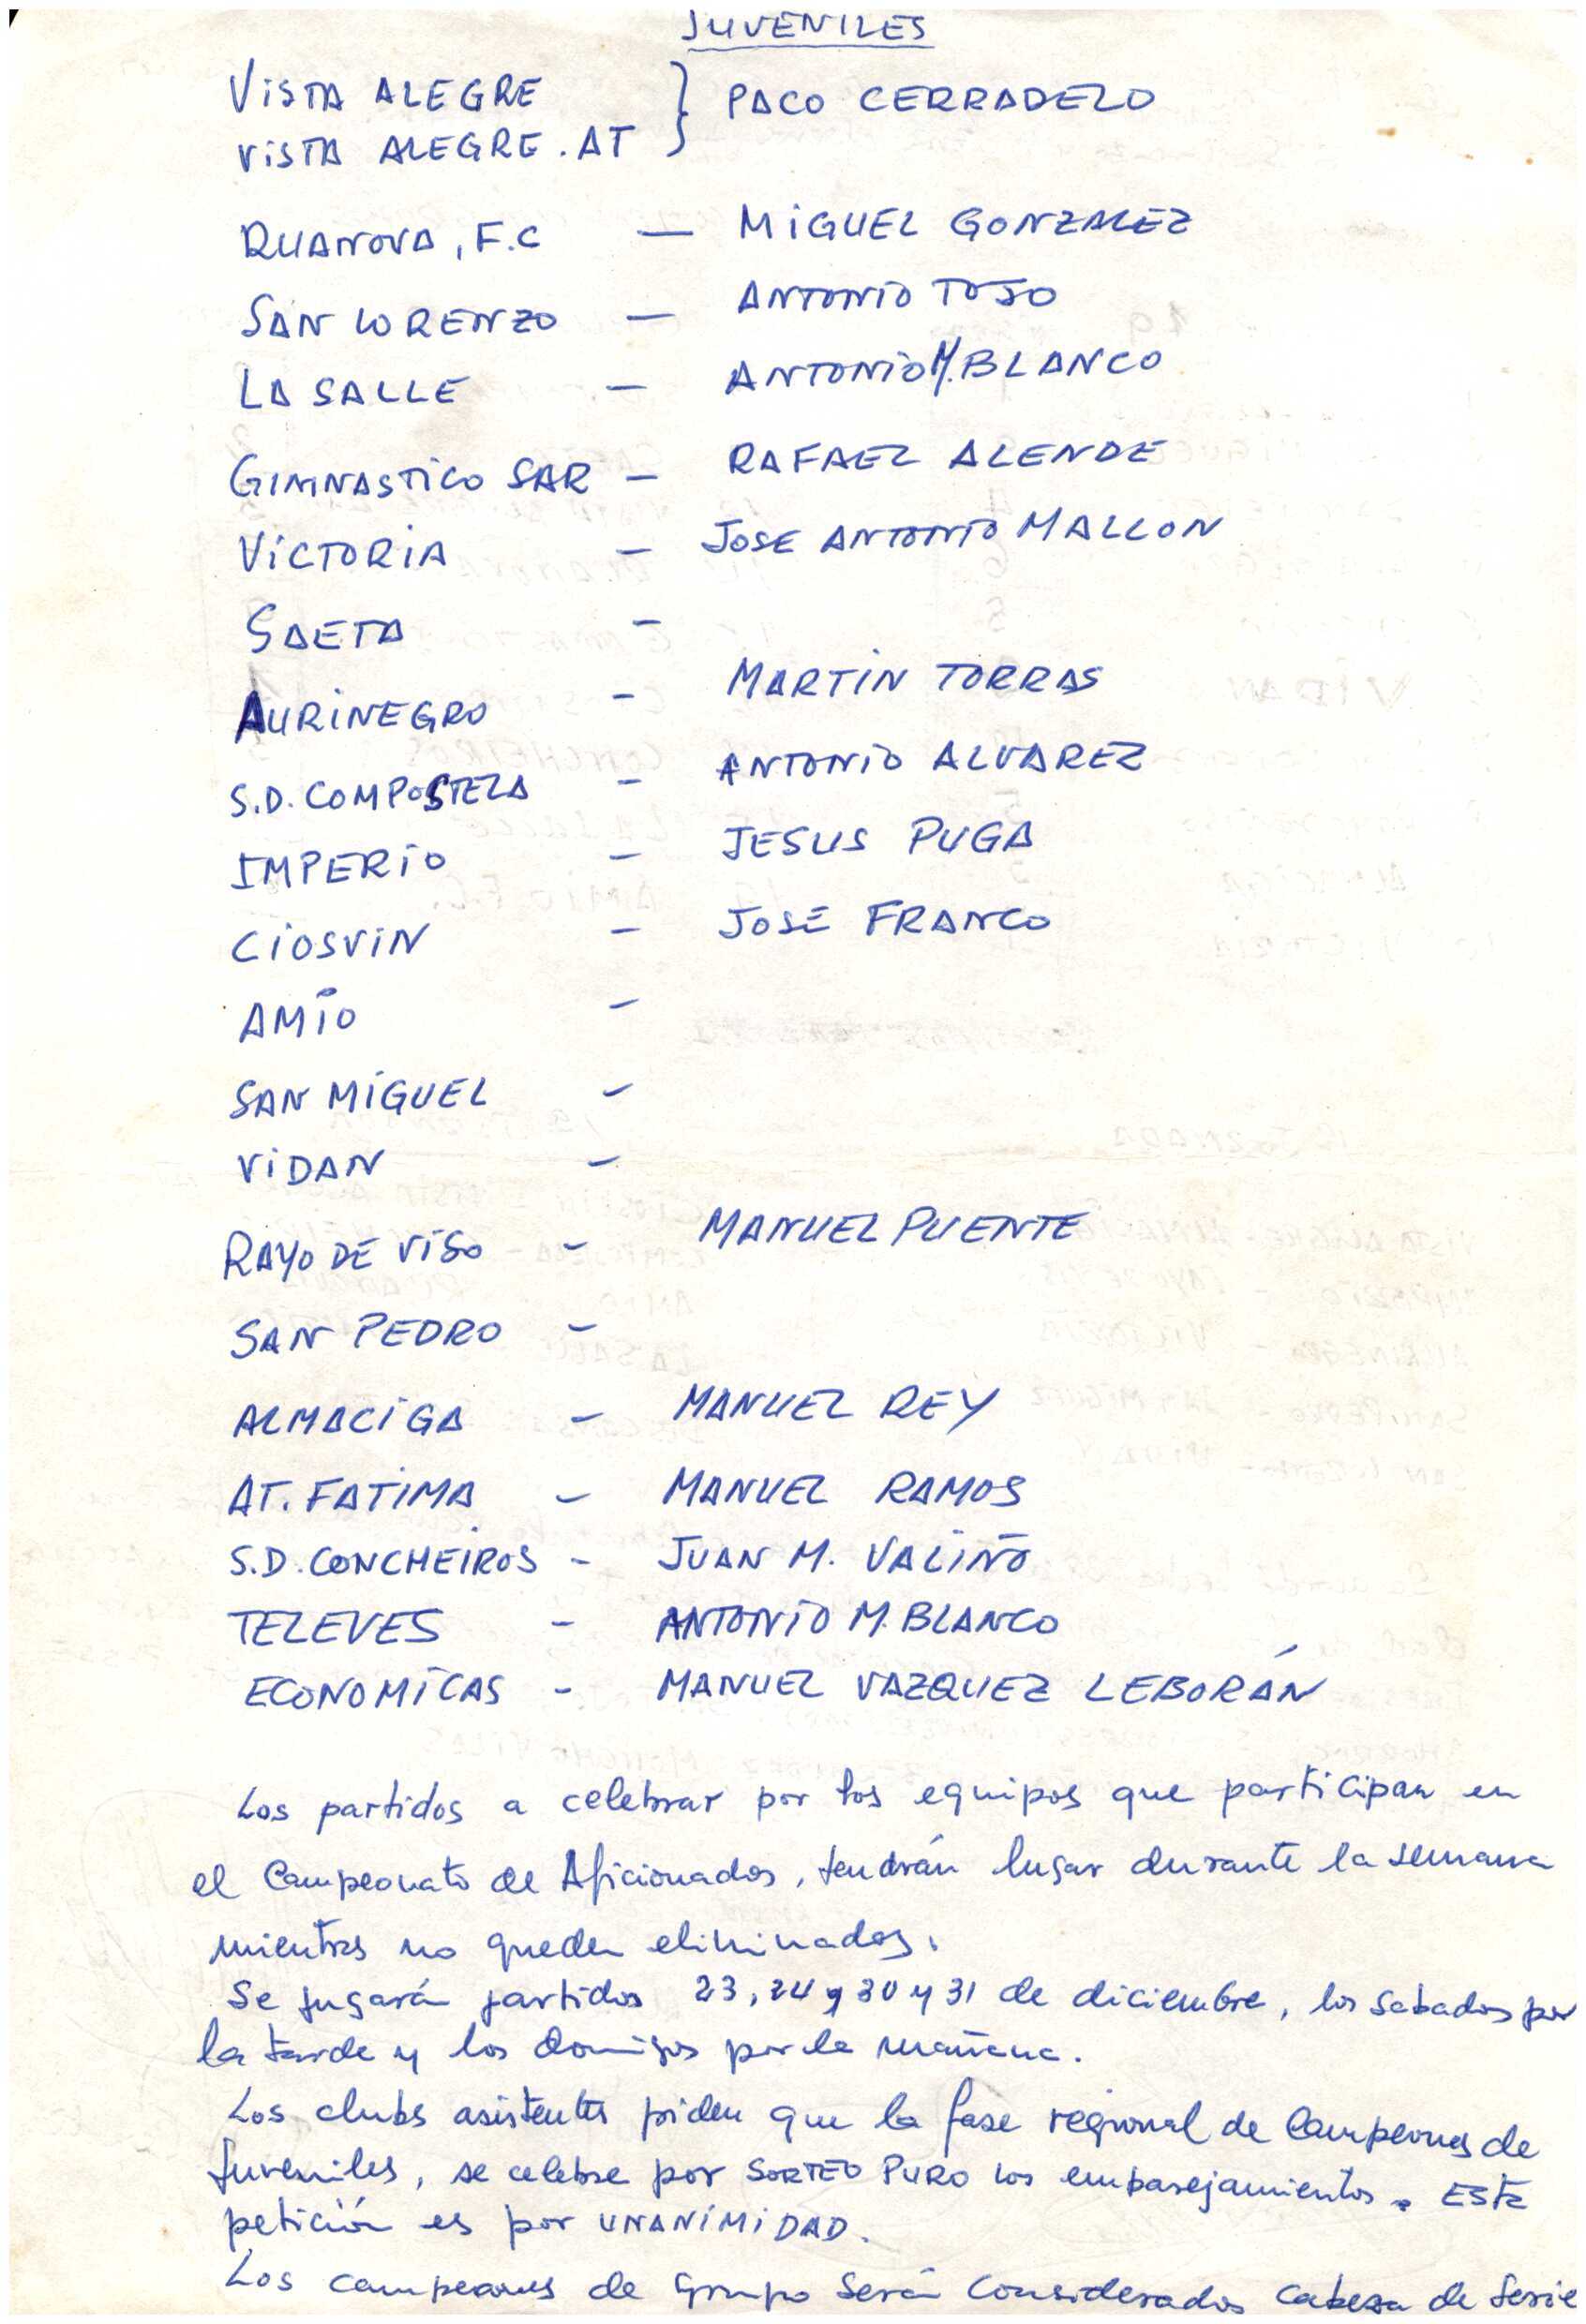 JUVENILES
VISTA ALEGRE } PACO CERRADELO
VISTA ALEGRE. AT
RUANOVA, F.C — MIGUEL GONZALEZ
SAN LORENZO — ANTONIO TOJO
LA SALLE — ANTONIO M. BLANCO
GIMNASTICO SAR — RAFAEL ALENDE
VICTORIA — JOSE ANTONIO MALLON
SAETA —
AURINEGRO — MARTIN TORRAS
S.D. COMPOSTELA — ANTONIO ALVAREZ
IMPERIO — JESUS PUGA
CIOSVIN — JOSE FRANCO
AMIO —
SAN MIGUEL —
VIDAN —
RAYO DE VISO — MANUEL PUENTE
SAN PEDRO —
ALMACIGA — MANUEL REY
AT. FATIMA — MANUEL RAMOS
S.D. CONCHEIROS — JUAN M. VALIÑO
TELEVES — ANTONIO M. BLANCO
ECONOMICAS — MANUEL VAZQUEZ LEBORÁN
Los partidos a celebrar por los equipos que participan en
el Campeonato de Aficionados, tendrán lugar durante la semana
mientras no queden eliminados.
Se jugará partidos 23, 24 y 30 y 31 de diciembre, los sabados por
la tarde y los domigos por la mañana.
Los clubs asistentes piden que la fase regional de Campeones de
Juveniles, se celebre por SORTEO PURO los emparejamientos. ESTE
petición es por UNANIMIDAD.
Los campeones de Grupo Será Considerados Cabeza de Serie